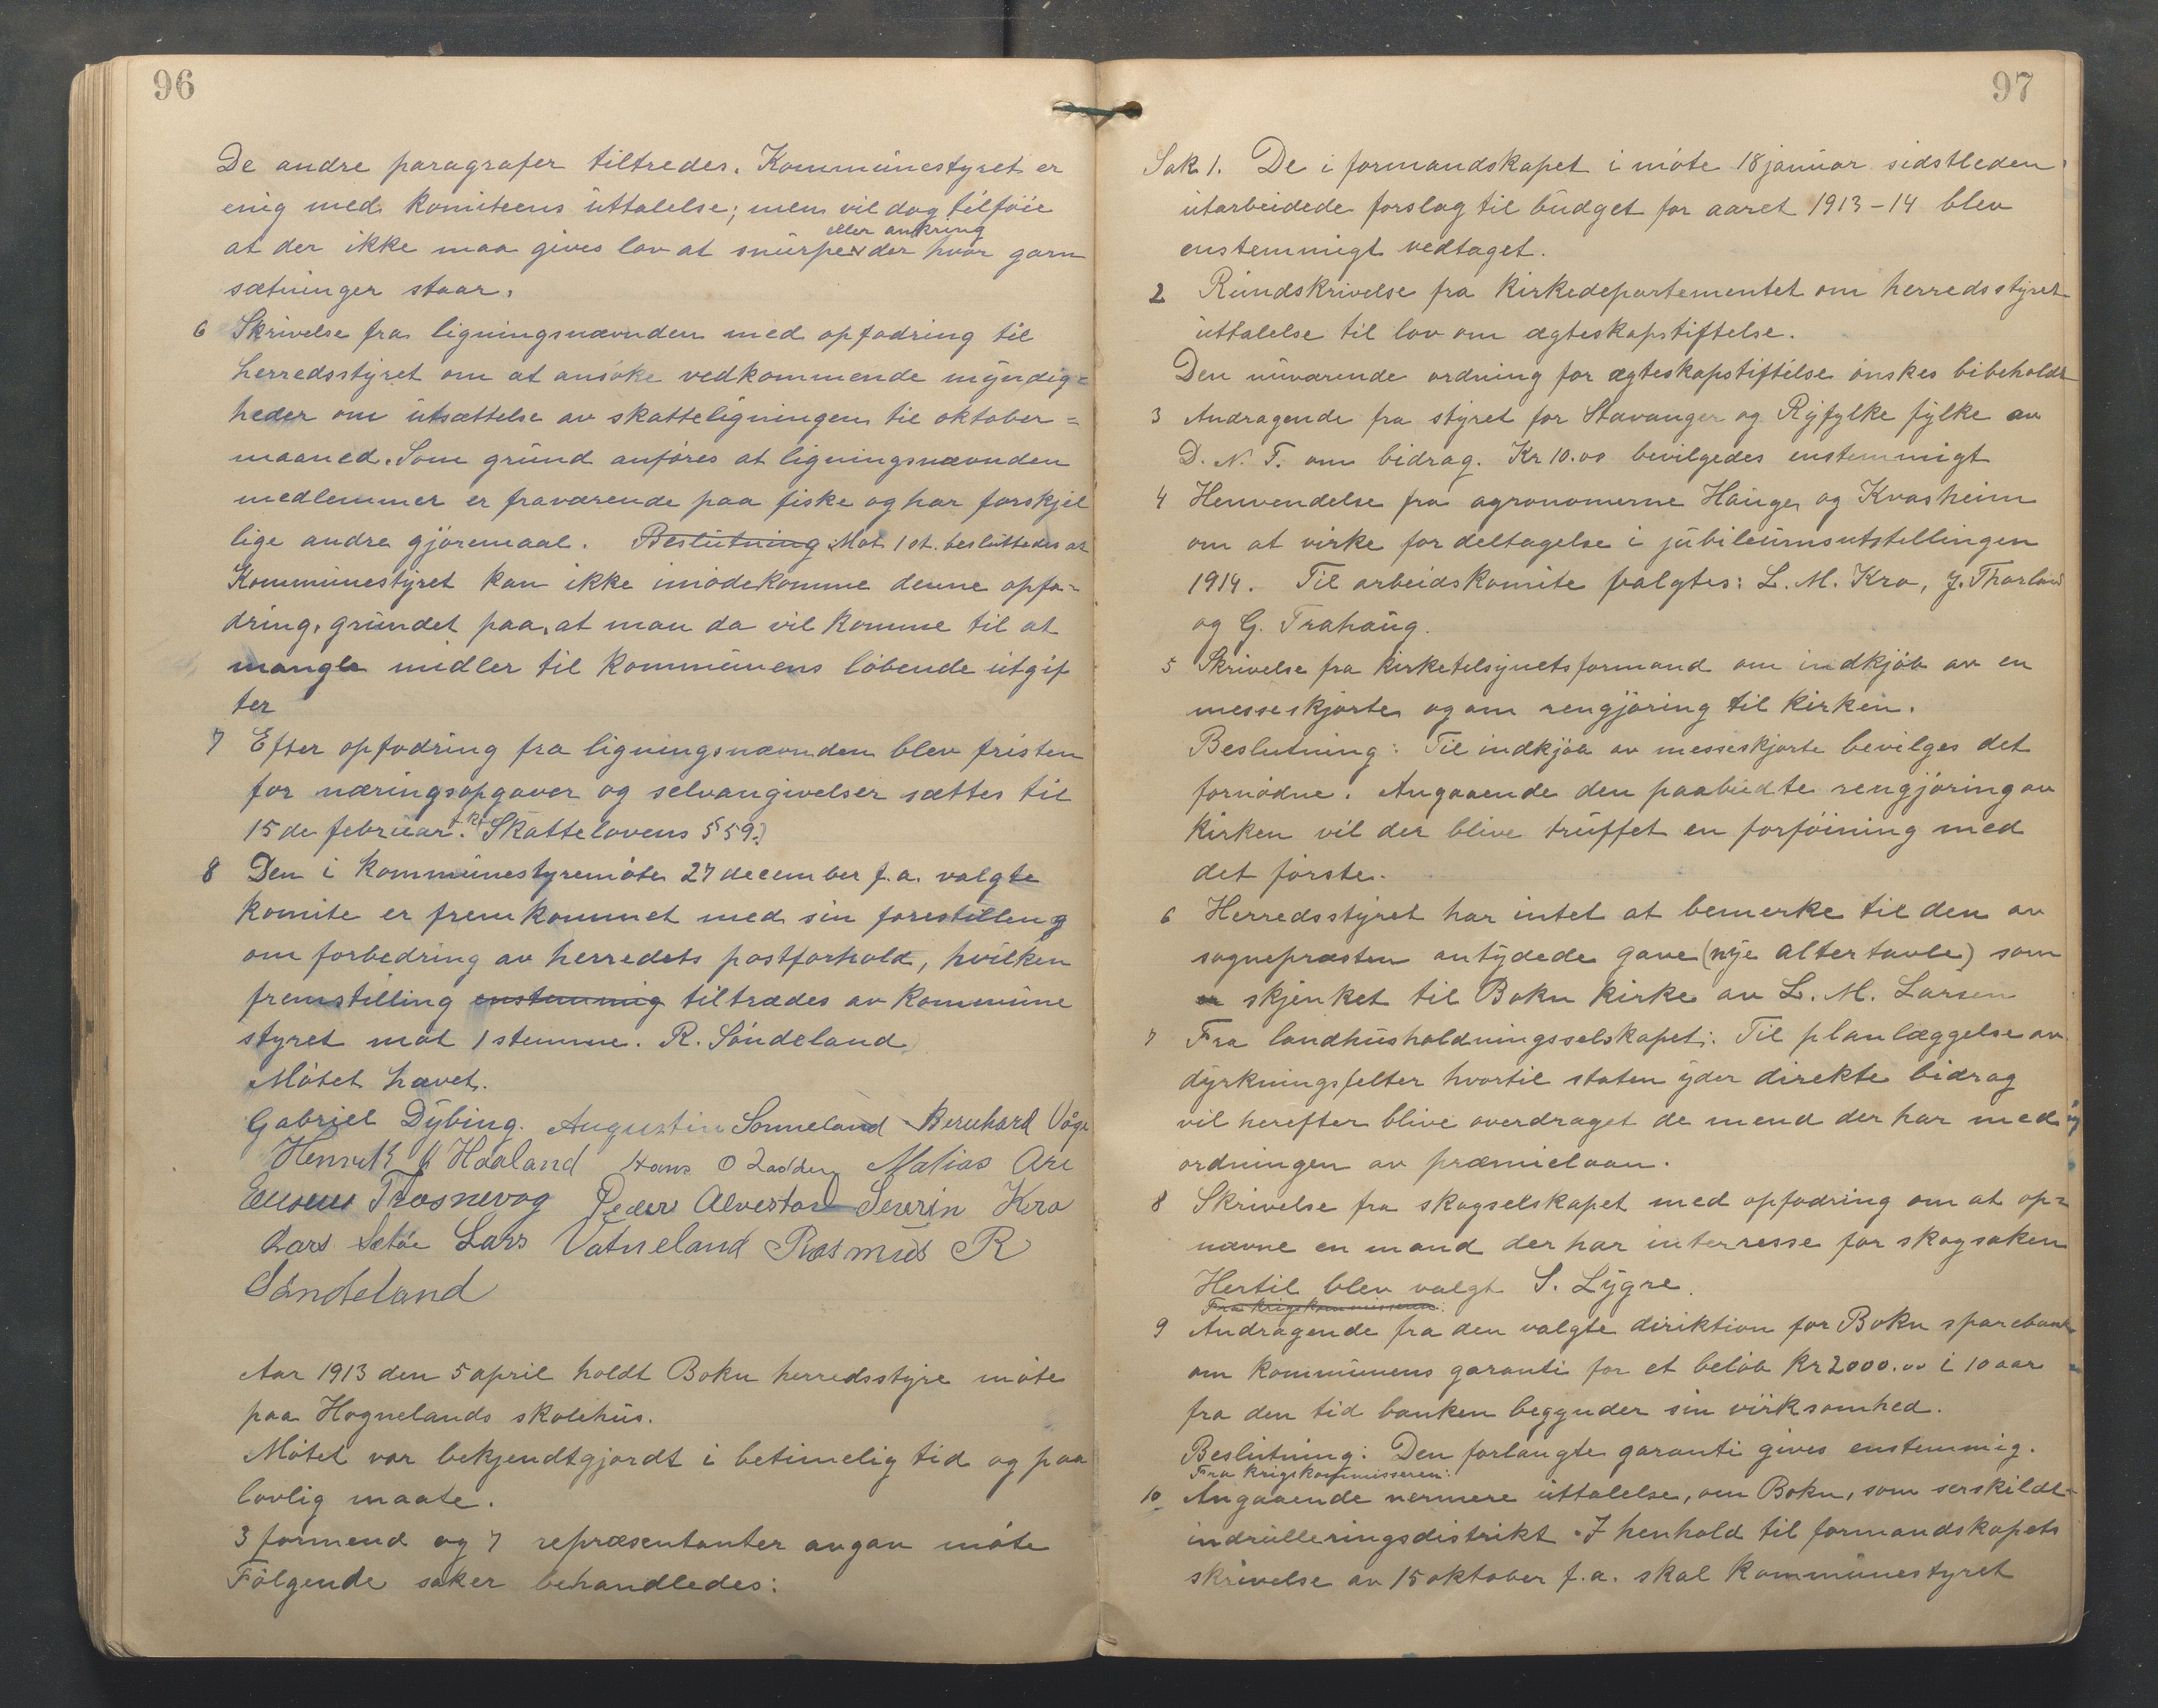 96
De andre paragrafer tiltredes. Kommunestyret er
enig med komiteens uttalelse; men vil dog tilföie
eller ankring
at der ikke maa gives lov at snurpe der hvor garn
sætninger staar.
6 Skrivelse fra ligningsnævnden med opfodring til
herredsstyret om at ansöke vedkommende myndig=
heder om utsættelse av skatteligningen til oktober=
maaned. Som grund anföres at ligningsnævnden
medlemmer er fraværende paa fiske og har forskjel
lige andre gjöremaal. Beslutning Mot 1 st. besluttedes at
Kommunestyret kan ikke imödekomme denne opfo=
dring, grundet paa, at man da vil komme til at
mangle midler til kommunens löbende utgif
ter
7 Efter opfodring fra ligningsnævnden blev fristen
for næringsopgaver og selvangivelser sættes til
15 de februar. Skattelovens § 59.)
8 Den i kommunestyremöte 27 december f.a. valgte
komite er fremkommet med sin forestilleng
om forbedring av herredets postforhold, hvilken
fremstilling enstemmig tiltrædes av kommune
styret mot 1 stemme. R. Söndeland
Mötet hævet.
Gabriel Dybing. Augustin Sonneland Bernhard Våge
Henrik Haaland Hans O Lodden Matias Are
Træsnevag Peder Alvestad Severin Kro
Lars Sætöe Lars Vatneland Rasmus R
Söndeland
Aar 1913 den 5 april holdt Bokn herredsstyre möte
paa Hognelands skolehus.
Mötet var bekjendtgjordt i betimelig tid og paa
lovlig maate.
3 formend og 7 repræsentanter avgav möte
Fölgende saker behandledes:
97
Sak 1. De i formandskapet i möte 18 januar sidstleden
utarbeidede forslag til budget for aaret 1913-14 blev
enstemmigt vedtaget.
2 Rundskrivelse fra Kirkedepartementet om herredsstyret
uttalelse til lov om ægteskapstiftelse.
Den nuværende ordning for ægteskapstiftelse önskes bibeholdt
3 Andragende fra styret for Stavanger og Ryfylke fylke av
D. N. T. om bidrag. Kr 10.00 bevilgedes enstemmigt
4 Henvendelse fra agronomerne Hauge og Kvasheim
om at virke for deltagelse i jubileumsutstellingen
1914. Til arbeidskomite valgtes: L. M. Kro, J. Thorland
og G. Trahaug.
5 Skrivelse fra kirketilsynets formand om indkjöb av en
messeskjorte og om rengjöring til kirken.
Beslutning: Til indkjöb av messeskjorte bevilges det
fornödne. Angaaende den paabudte rengjöring av
kirken vil der blive truffet en forföining med
det förste.
6 Herredsstyret har intet at bemerke til den av
sognepræsten antydede gave (nye altertavle) som
er skjenket til Bokn kirke av L. M. Larsen
7 Fra landhusholdningsselskapet: Til planlæggelse av
dyrkningsfelter hvortil staten yder direkte bidrag
vil herefter blive overdraget de mend der har med
ordningen av præmielaan.
8 Skrivelse fra skogselskapet med opfodring om at op=
nævne en mand der har interresse for skogsaken
Hertil blev valgt S. Lygre.
Fra krigskommisseren:
9 Andragende fra den valgte diriktion for Bokn sparebank
om kommunens garanti for et belöb kr 2000.00 i 10 aar
fra den tid banken begynder sin virksomhed.
Beslutning: Den forlangte garanti gives enstemmig.
Fra krigskommisseren:
10 Angaaende nermere uttalelse, om Bokn, som serskildt
indrulleringsdistrikt. I henhold til formandskapets
skrivelse av 15 oktober f.a. skal kommunestyret